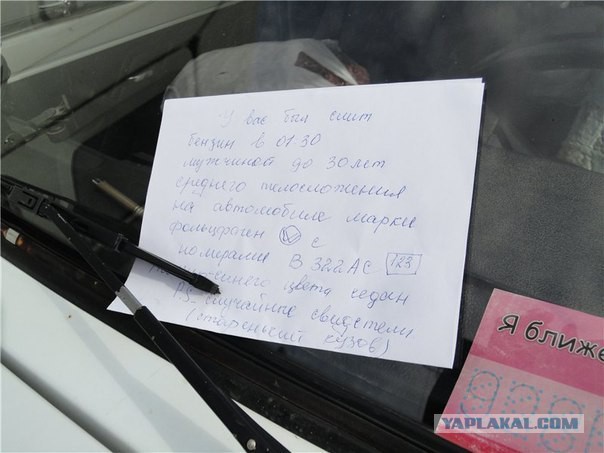 У вас был слит
бензин в 01.30
мужчиной до 30 лет
среднего телосложения
на автомобиле марки
фольцваген с
номерами В 322 АС 123
синего цвета седан
PS - случайные свидетели
(старенький кузов)
Я ближе
YAPLAKAL.COM